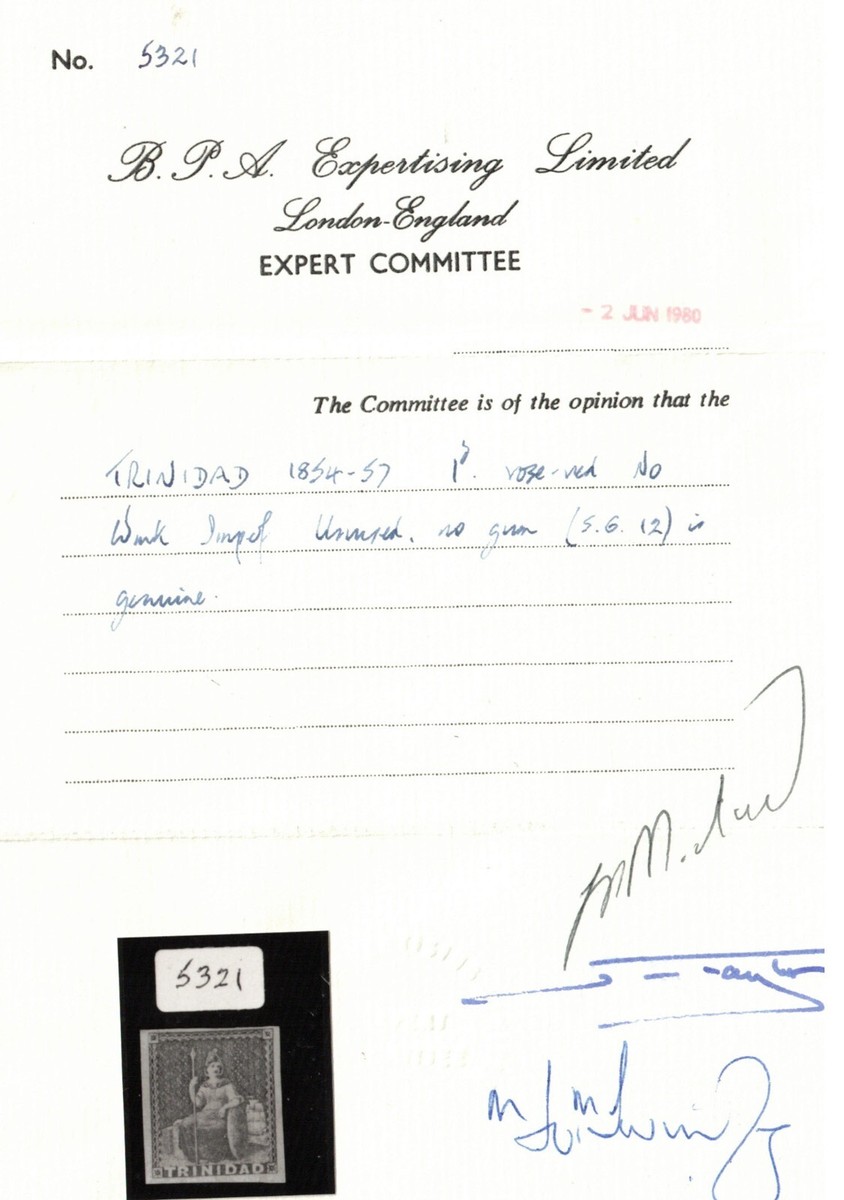 No. 5321
B. P. A. Expertising Limited
London-England
EXPERT COMMITTEE
- 2 JUN 1980
The Committee is of the opinion that the
TRINIDAD 1854-57 1d. rose-red No
Wmk Imperf Unused, no gum (S.G. 12) is
genuine.
5321
TRINIDAD